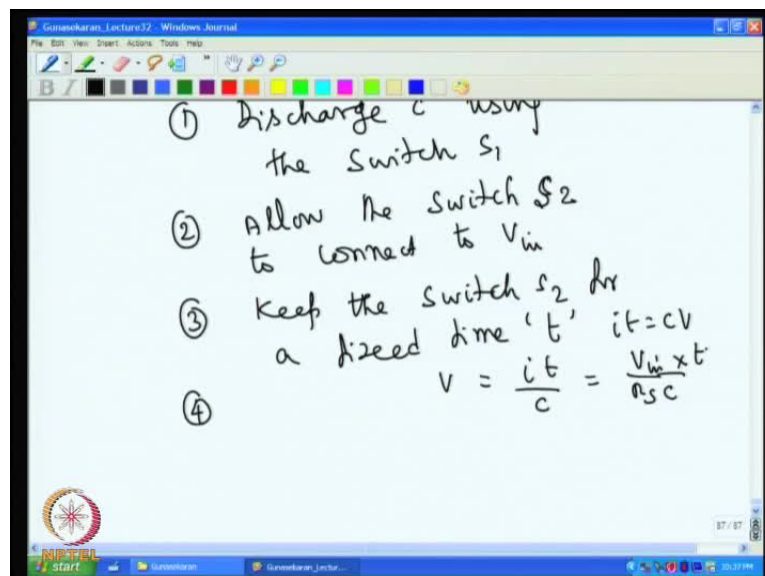 Gunasekaran_Lecture32 - Windows Journal
File Edit View Insert Actions Tools Help
B I
① Discharge C using
the switch S1
② Allow the switch S2
to connect to Vin
③ Keep the switch S2 for
a fixed time 't' it = CV
V = it/C = Vin × t/RsC
④
87 / 87
NPTEL
start Gunasekaran Gunasekaran_Lectur... 10:37 PM